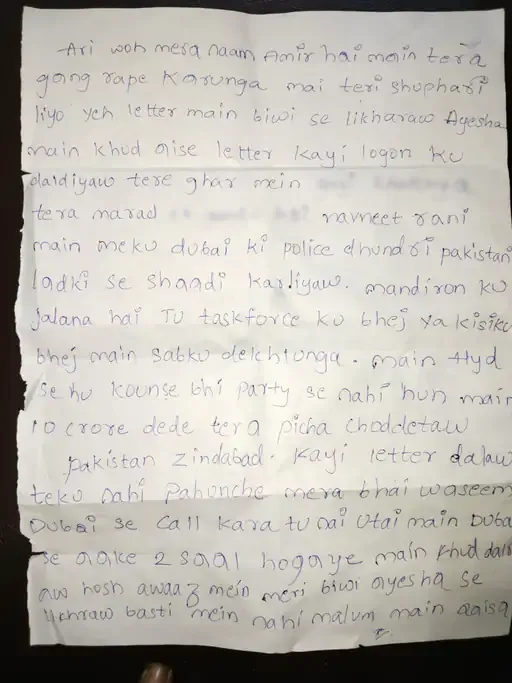 Ari woh mera naam Amir hai main tera
gang rape Karunga mai teri shuphari
liyo yeh letter main biwi se likharaw Ayesha
main khud aise letter kayi logon ku
daldiyaw tere ghar mein
tera marad navneet rani
main meku dubai ki police dhundri pakistani
ladki se shaadi karliyaw. mandiron ku
jalana hai TU taskforce ku bhej ya kisiku
bhej main sabku dekhlunga. main Hyd
se hu kounse bhi party se nahi hun main
10 crore dede tera picha choddetaw
pakistan zindabad. Kayi letter dalaw
teku nahi Pahunche mera bhai waseem
Dubai se call kara tu nai Utai main Dubai
se aake 2 saal hogaye main khud dalr
aw hosh awaaz mein meri biwi ayesha se
basti mein nahi malum main aaisa